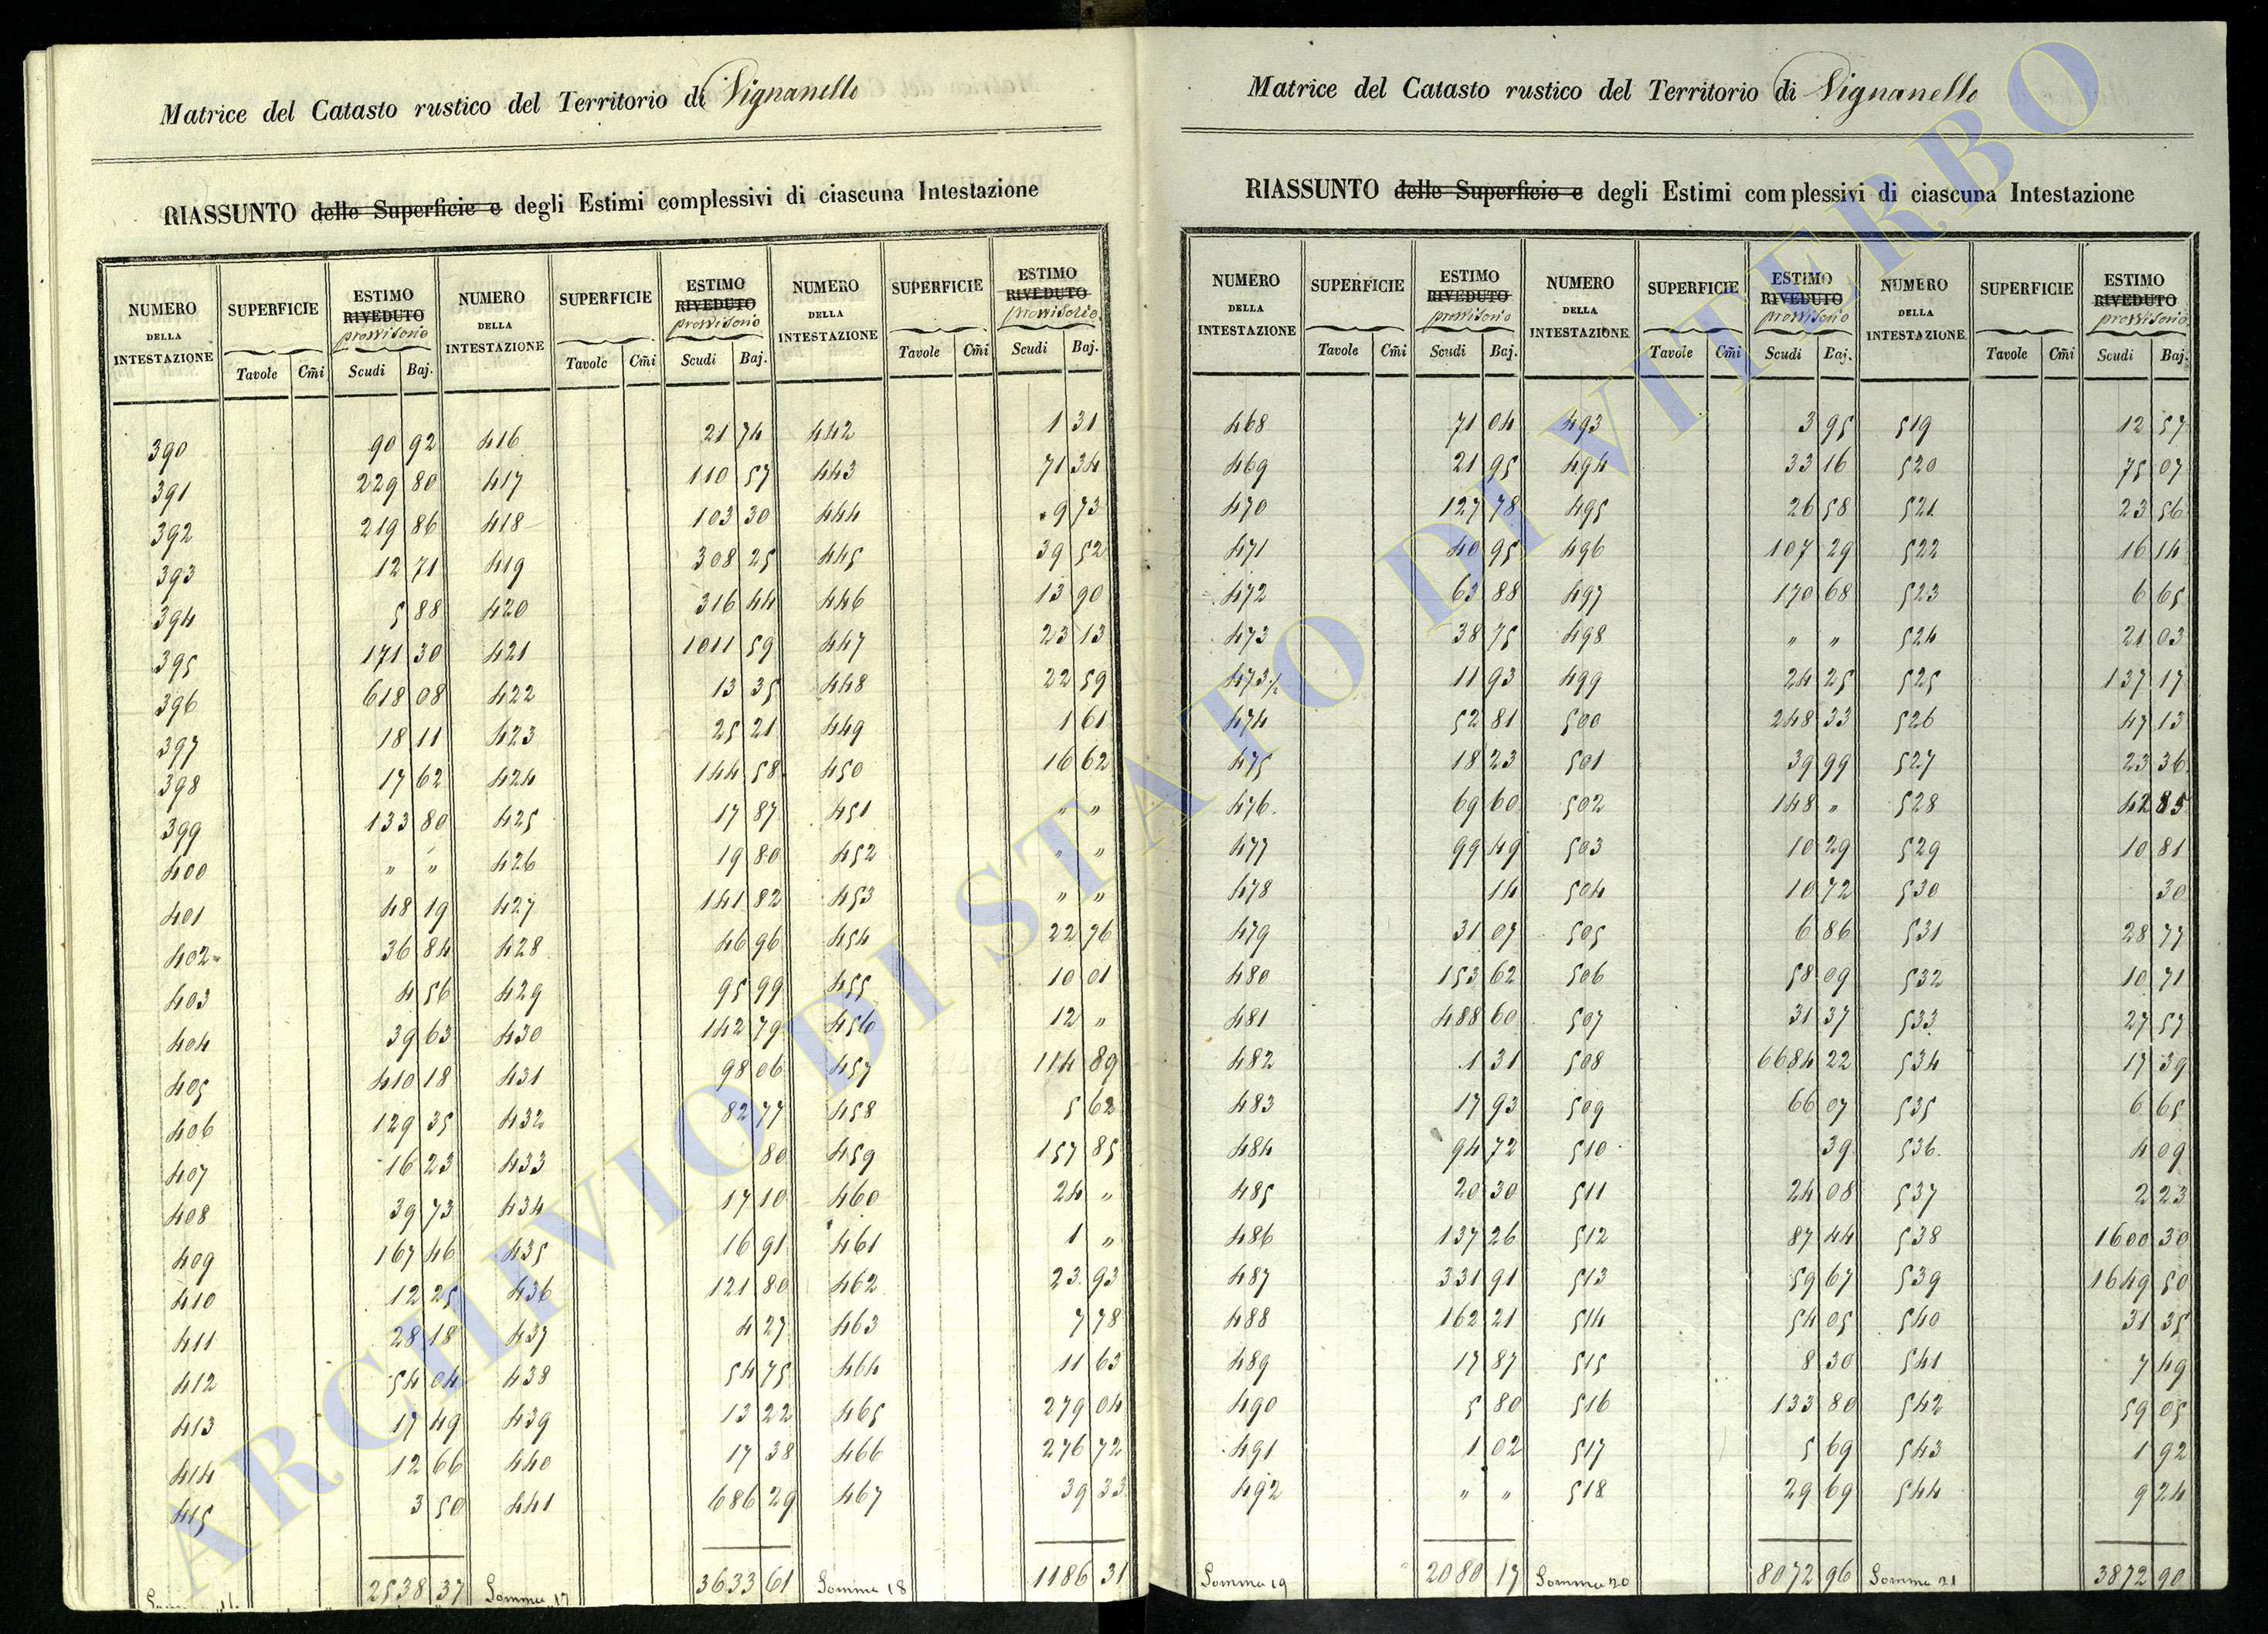 Matrice del Catasto rustico del Territorio di Vignanello
RIASSUNTO delle Superficie e degli Estimi complessivi di ciascuna Intestazione
NUMERO DELLA INTESTAZIONE SUPERFICIE ESTIMO RIVEDUTO provvisorio NUMERO DELLA INTESTAZIONE SUPERFICIE ESTIMO RIVEDUTO provvisorio NUMERO DELLA INTESTAZIONE SUPERFICIE ESTIMO RIVEDUTO provvisorio
Tavole Cm̃i Scudi Baj. Tavole Cm̃i Scudi Baj. Tavole Cm̃i Scudi Baj.
390 90 92 416 21 74 442 1 31
391 229 80 417 110 57 443 71 34
392 219 86 418 103 30 444 9 73
393 12 71 419 308 25 445 39 52
394 5 88 420 316 44 446 13 90
395 171 30 421 1011 59 447 23 13
396 618 08 422 13 35 448 22 59
397 18 11 423 25 21 449 1 61
398 17 62 424 144 58 450 16 62
399 133 80 425 17 87 451 " "
400 " " 426 19 80 452 " "
401 48 19 427 141 82 453 " "
402 36 84 428 46 96 454 22 76
403 4 56 429 95 99 455 10 01
404 39 63 430 142 79 456 12 "
405 410 18 431 98 06 457 114 89
406 129 35 432 82 77 458 5 62
407 16 23 433 80 459 157 85
408 39 73 434 17 10 460 24 "
409 167 46 435 16 91 461 1 "
410 12 25 436 121 80 462 23 93
411 28 18 437 4 27 463 7 78
412 54 04 438 54 75 464 11 63
413 17 49 439 13 22 465 279 04
414 12 66 440 17 38 466 276 72
415 3 50 441 686 29 467 39 33
2538 37 Somma 17 3633 61 Somma 18 1186 31
Matrice del Catasto rustico del Territorio di Vignanello
RIASSUNTO delle Superficie e degli Estimi complessivi di ciascuna Intestazione
NUMERO DELLA INTESTAZIONE SUPERFICIE ESTIMO RIVEDUTO provvisorio NUMERO DELLA INTESTAZIONE SUPERFICIE ESTIMO RIVEDUTO provvisorio NUMERO DELLA INTESTAZIONE SUPERFICIE ESTIMO RIVEDUTO provvisorio
Tavole Cm̃i Scudi Baj. Tavole Cm̃i Scudi Baj. Tavole Cm̃i Scudi Baj.
468 71 04 493 3 95 519 12 57
469 21 95 494 33 16 520 75 07
470 127 78 495 26 58 521 23 56
471 40 95 496 107 29 522 16 14
472 63 88 497 170 68 523 6 65
473 38 75 498 " " 524 21 03
473½ 11 93 499 24 25 525 137 17
474 52 81 500 248 33 526 47 13
475 18 23 501 39 99 527 23 36
476 69 60 502 148 " 528 42 85
477 99 49 503 10 29 529 10 81
478 14 504 10 72 530 30
479 31 07 505 6 86 531 28 77
480 153 62 506 58 09 532 10 71
481 488 60 507 31 37 533 27 57
482 1 31 508 6684 22 534 17 39
483 17 93 509 66 07 535 6 65
484 94 72 510 39 536 4 09
485 20 30 511 24 08 537 2 23
486 137 26 512 87 44 538 1600 30
487 331 91 513 59 67 539 1649 50
488 162 21 514 54 05 540 31 35
489 17 87 515 8 30 541 7 49
490 5 80 516 133 80 542 59 05
491 1 02 517 5 69 543 1 92
492 " " 518 29 69 544 9 24
Somma 19 2080 17 Somma 20 8072 96 Somma 21 3872 90
ARCHIVIO DI STATO DI VITERBO